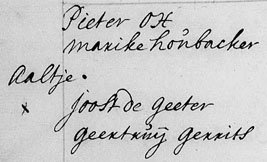 Pieter Ott
marike hoŭbacker
Aaltje.
x Joost de geeter
geertruÿ gerrits